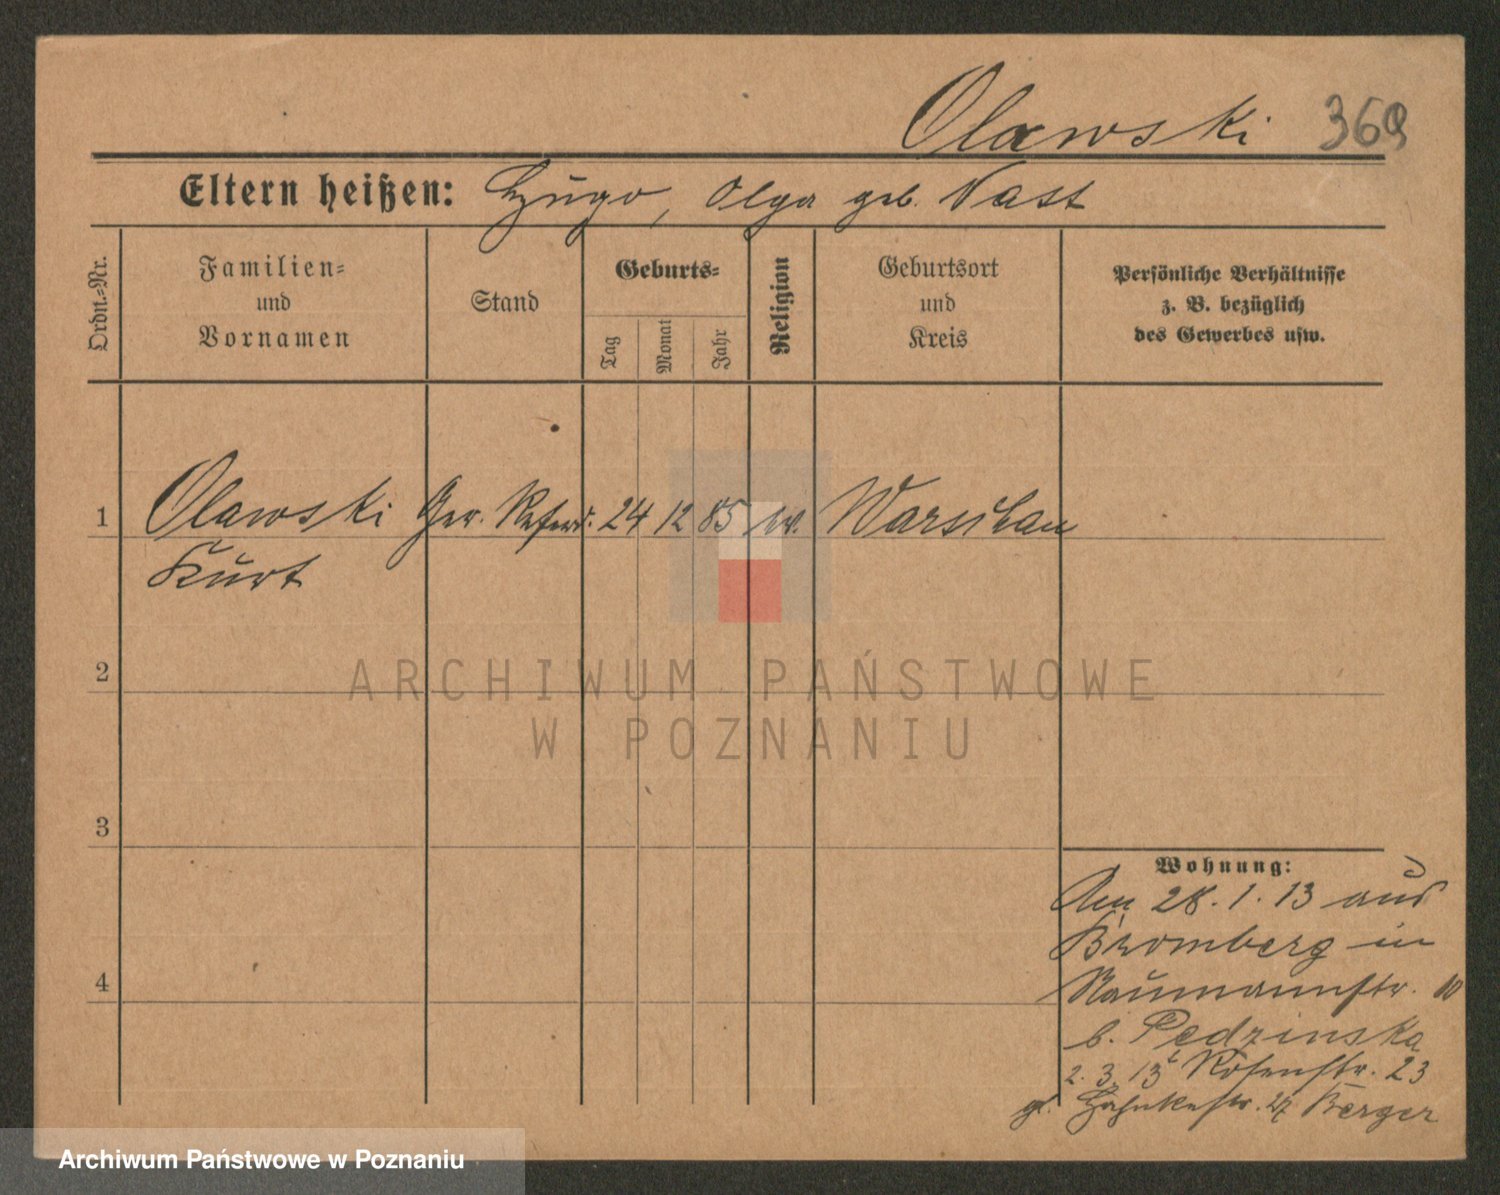 Olawski 369
Eltern heißen: Hugo, Olga geb. Nast
Ordn.-Nr.
Familien-
und
Vornamen
Stand
Geburts-
Tag
Monat
Jahr
Religion
Geburtsort
und
Kreis
Persönliche Verhältnisse
z. B. bezüglich
des Gewerbes usw.
1 Olawski Ger. Referd. 24 12 85 ev. Warschau
Kurt
2
3
4
Wohnung:
Am 28. 1. 13 aus
Bromberg in
Naumannstr. 10
b. Pedzinska
2. 3. 13 Rosenstr. 23
Berger
ARCHIWUM PAŃSTWOWE
W POZNANIU
Archiwum Państwowe w Poznaniu